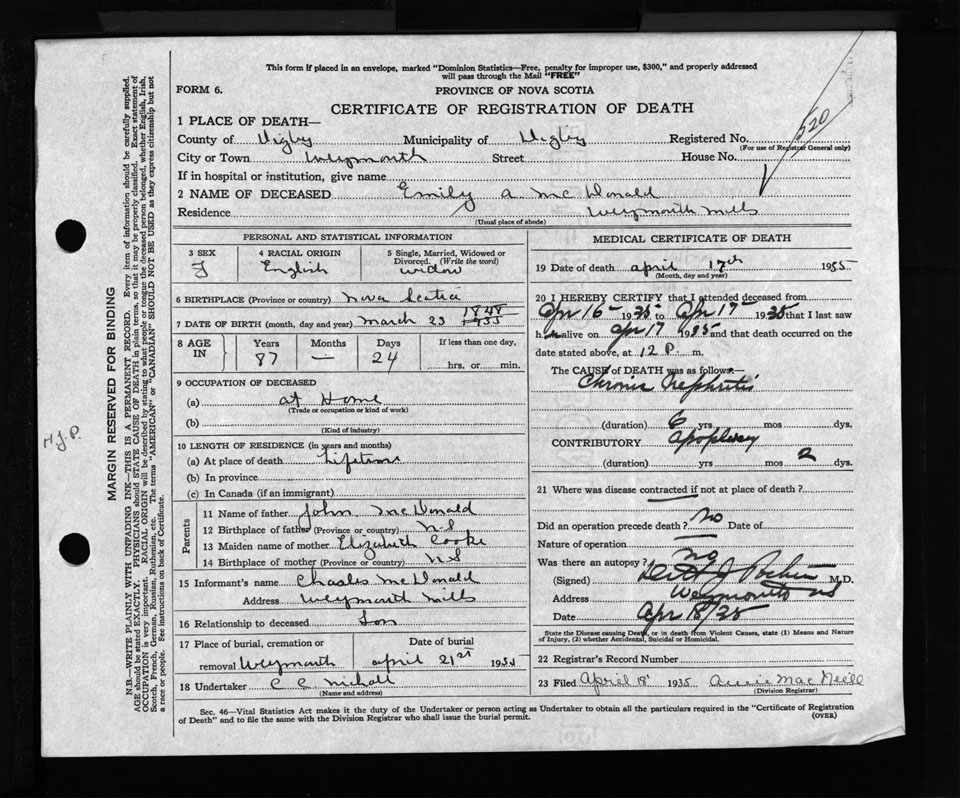 This form if placed in an envelope, marked "Dominion Statistics—Free, penalty for improper use, $300," and properly addressed
will pass through the Mail "FREE"
FORM 6.
PROVINCE OF NOVA SCOTIA
CERTIFICATE OF REGISTRATION OF DEATH
520
1 PLACE OF DEATH—
County of Digby Municipality of Digby Registered No.
(For use of Registrar General only)
City or Town Weymouth Street House No.
If in hospital or institution, give name
2 NAME OF DECEASED Emily A. McDonald
Residence Weymouth Mills
(Usual place of abode)
PERSONAL AND STATISTICAL INFORMATION
3 SEX 4 RACIAL ORIGIN 5 Single, Married, Widowed or
Divorced. (Write the word)
F English widow
6 BIRTHPLACE (Province or country) Nova Scotia
7 DATE OF BIRTH (month, day and year) March 23 1848
8 AGE IN Years Months Days If less than one day,
87 — 24 hrs. or min.
9 OCCUPATION OF DECEASED
(a) at Home
(Trade or occupation or kind of work)
(b)
(Kind of industry)
10 LENGTH OF RESIDENCE (in years and months)
(a) At place of death Lifetime
(b) In province
(c) In Canada (if an immigrant)
Parents
11 Name of father John McDonald
12 Birthplace of father (Province or country) N.S
13 Maiden name of mother Elizabeth Cooke
14 Birthplace of mother (Province or country) N S
15 Informant's name Charles McDonald
Address Weymouth Mills
16 Relationship to deceased Son
17 Place of burial, cremation or Date of burial
removal Weymouth April 21st 1935
18 Undertaker C C Nichols
(Name and address)
MEDICAL CERTIFICATE OF DEATH
19 Date of death April 17th 1935
(Month, day and year)
20 I HEREBY CERTIFY that I attended deceased from
Apr 16 1935 to Apr 17 1935 that I last saw
her alive on Apr 17 1935 and that death occurred on the
date stated above, at 12 P. m.
The CAUSE of DEATH was as follows:—
Chronic Nephritis
(duration) 6 yrs mos dys.
CONTRIBUTORY Apoplexy
(duration) yrs mos 2 dys.
21 Where was disease contracted if not at place of death?
Did an operation precede death? No Date of
Nature of operation
Was there an autopsy? No
(Signed) M.D.
Address Weymouth NS
Date Apr 18/35
State the Disease causing Death, or in death from Violent Causes, state (1) Means and Nature
of Injury, (2) whether Accidental, Suicidal or Homicidal.
22 Registrar's Record Number
23 Filed April 18 1935 Annie MacNeill
(Division Registrar)
Sec. 46—Vital Statistics Act makes it the duty of the Undertaker or person acting as Undertaker to obtain all the particulars required in the "Certificate of Registration
of Death" and to file the same with the Division Registrar who shall issue the burial permit.
(OVER)
H.J.P.
MARGIN RESERVED FOR BINDING
N.B.—WRITE PLAINLY WITH UNFADING INK—THIS IS A PERMANENT RECORD. Every item of information should be carefully supplied.
AGE should be stated EXACTLY. PHYSICIANS should STATE CAUSE OF DEATH in plain terms, so that it may be properly classified. Exact statement of
OCCUPATION is very important. RACIAL ORIGIN will be described by stating to what people or tongue the deceased person belonged, whether English, Irish,
Scotch, French, German, Russian, Ruthenian, etc. The terms "AMERICAN" or "CANADIAN" SHOULD NOT BE USED as they express citizenship but not
a race or people. See instructions on back of Certificate.